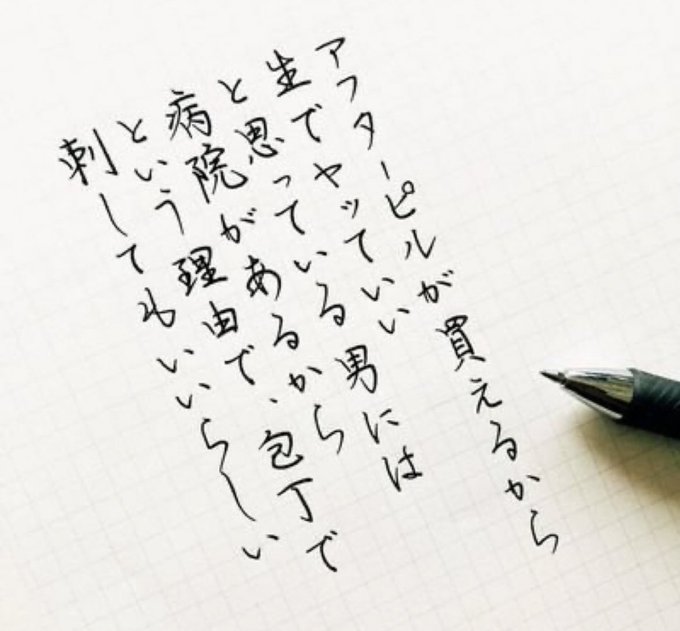 アフターピルが買えるから
生でヤッていい
と思っている男には
病院があるから
という理由で、包丁で
刺してもいいらしい